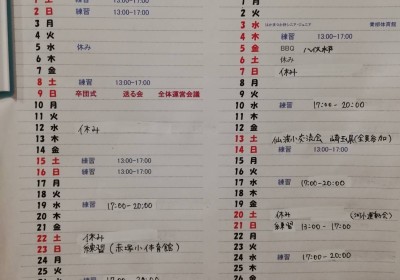 1 土 練習 13:00-17:00
2 日 練習 13:00-17:00
3 月
4 火
5 水 休み
6 木
7 金
8 土 練習 13:00-17:00
9 日 卒団式 送る会 全体運営会議
10 月
11 火
12 水 休み
13 木
14 金
15 土 練習 13:00-17:00
16 日 練習 13:00-17:00
17 月
18 火
19 水 練習 17:00-20:00
20 木
21 金
22 土 休み
23 日 練習(赤塚小体育館)
24 月
25 火
2 火
3 水
4 木 練習 13:00-17:00
5 金 BBQ
6 土 休み
7 日 休み
8 月
9 火
10 水 練習 17:00-20:00
11 木
12 金
13 土 仙波小交流会 埼玉県(全員参加)
14 日 練習 13:00-17:00
15 月
16 火
17 水 練習 17:00-20:00
18 木
19 金
20 土 休み (河小運動会)
21 日 練習 13:00-17:00
22 月
23 火
24 水 練習 17:00-20:00
25 木
26 金